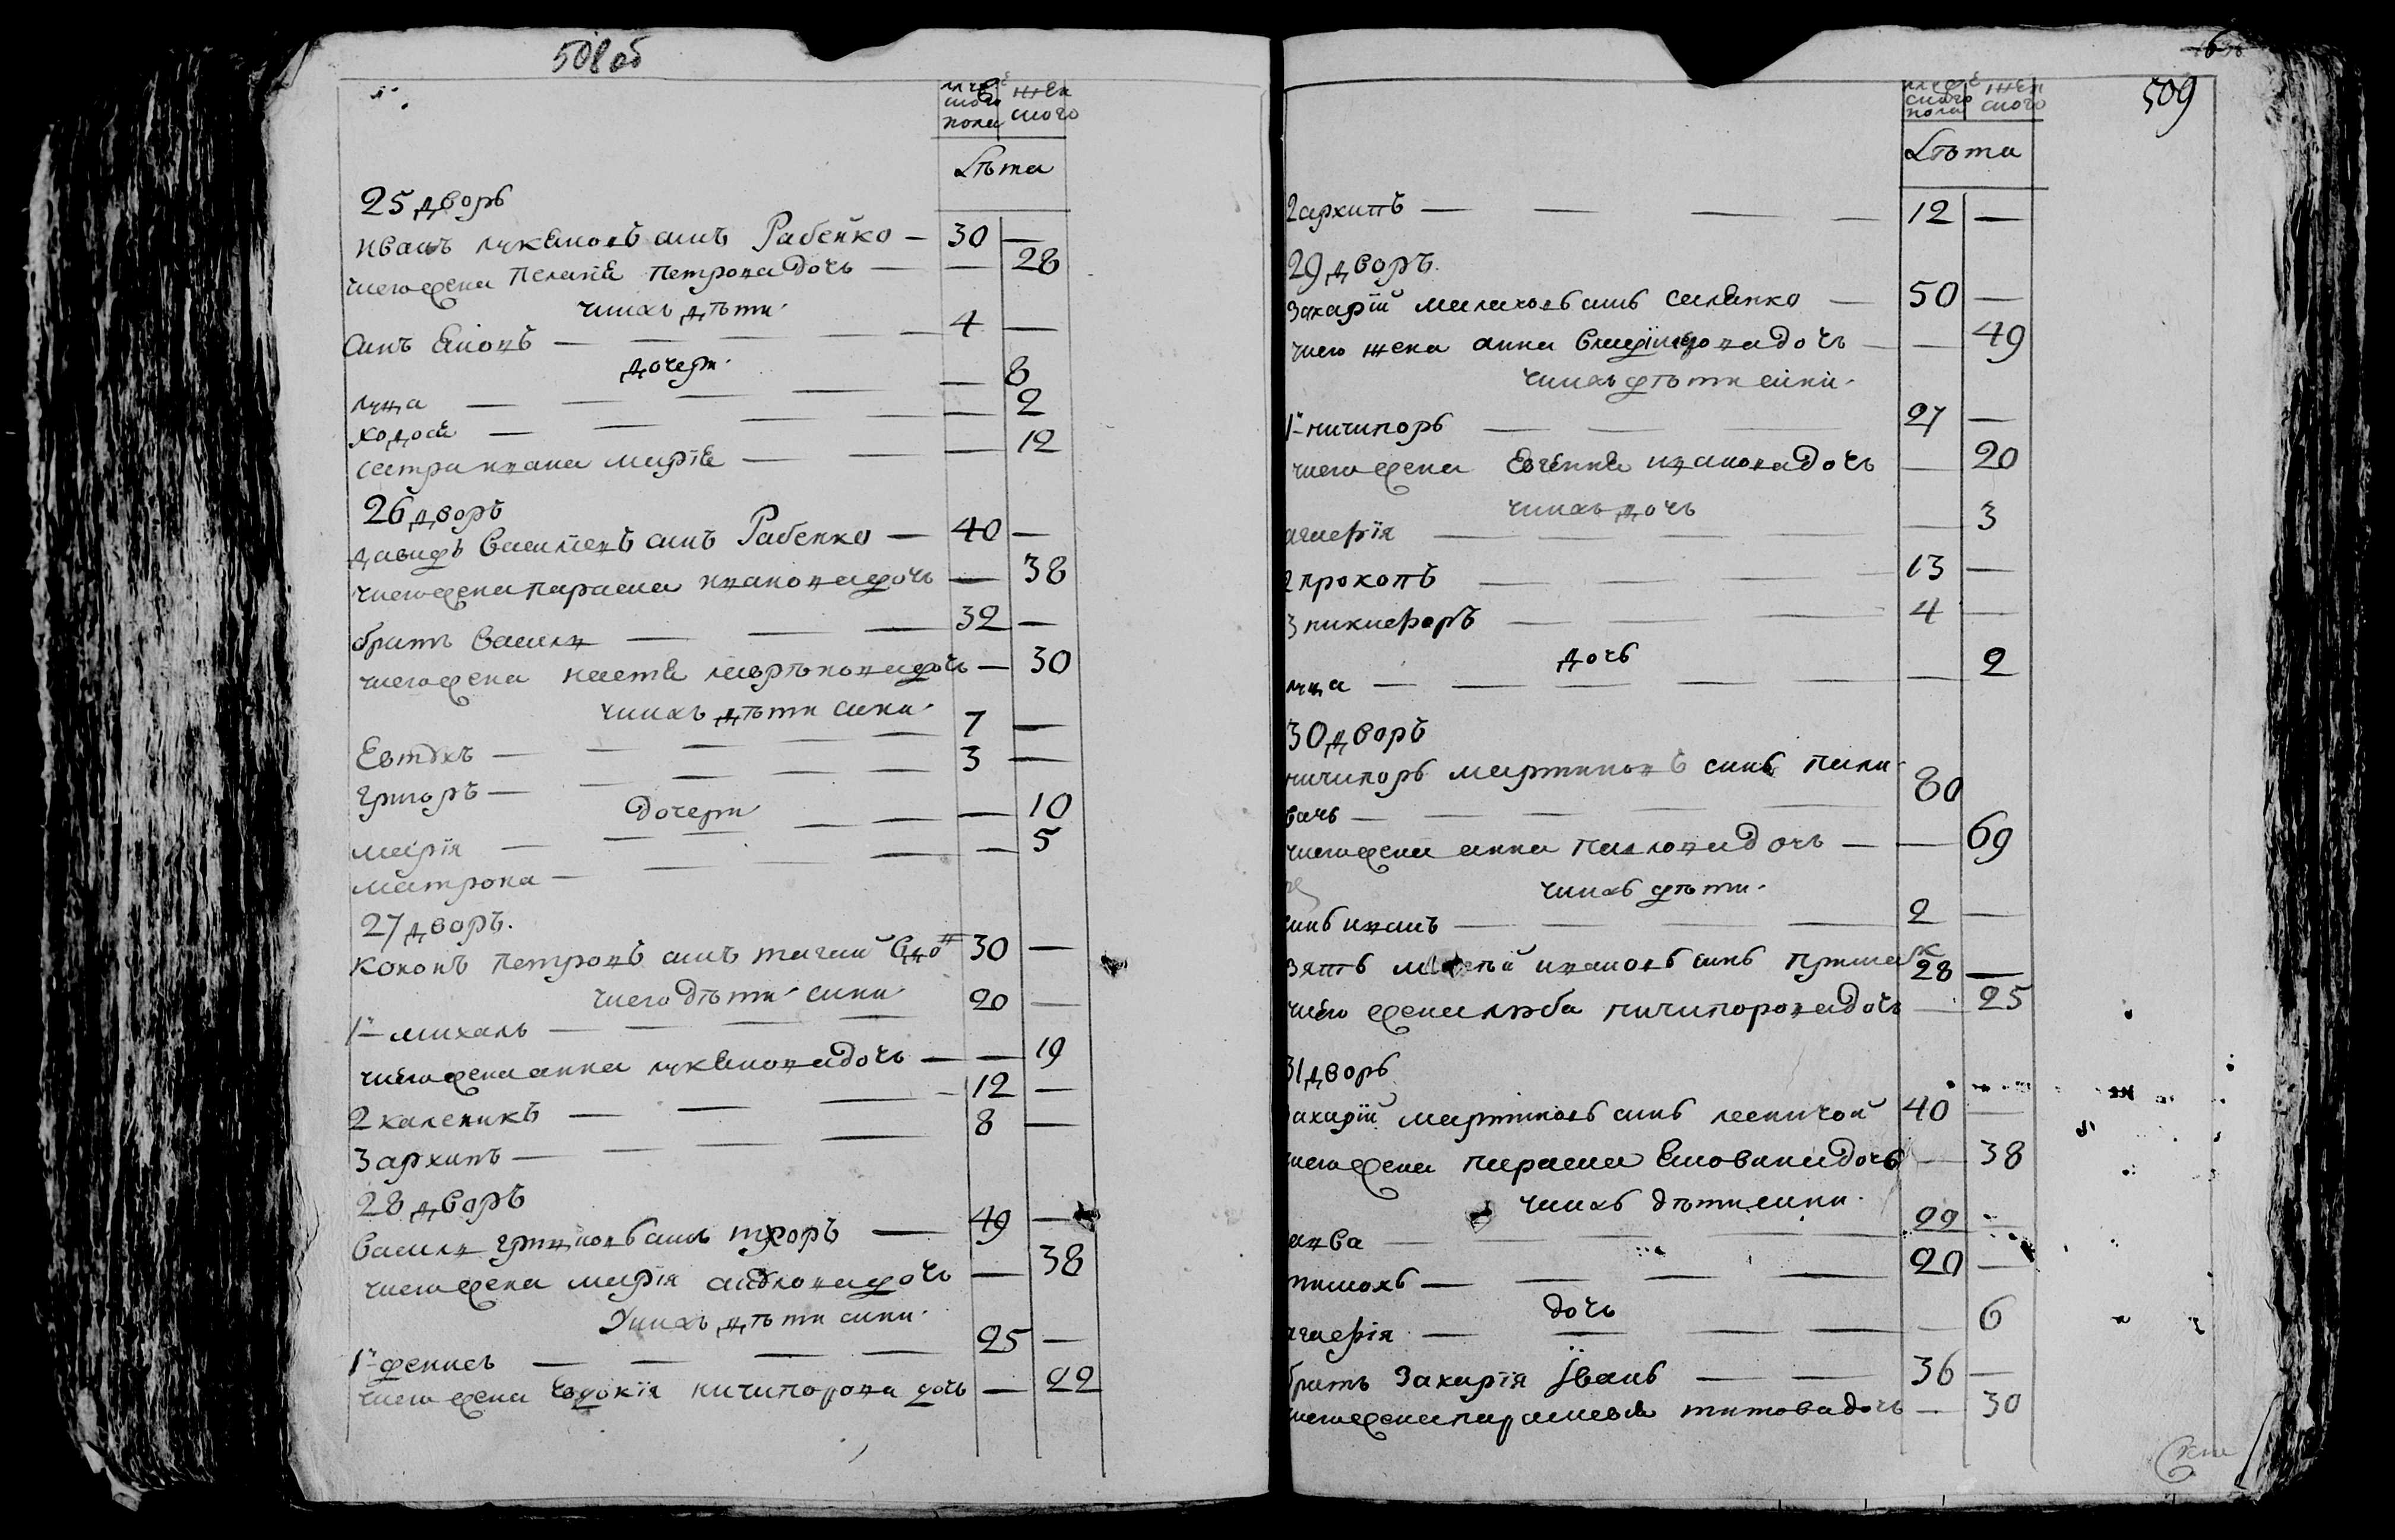 508 об
мужеского пола | женского
Лѣта
25 дворъ
иванъ лукяновъ синъ Рабенко — 30 —
чиего жена Пелагея Петрова дочь — — 28
чиихъ дѣти
синъ — 4 —
дочери
луца — — 8
ходося — — 2
сестра ивана мария — — 12
26 дворъ
давидъ Василевъ синъ Рабенко — 40 —
чиего жена параска иванова дочь — 38
братъ Василь — 32 —
чиего жена настя дочь — 30
чиихъ дѣти сини
Евтухъ — 7 —
григоръ — 3 —
дочери
марія — — 10
матрона — — 5
27 дворъ.
Кононъ Петровъ синъ 30 —
чиего дѣти сини
1й михаль — 20 —
чиего жена анна лукянова дочь — — 19
2 каленикъ — 12 —
3 архипъ — 8 —
28 дворъ
Василь синъ 49 —
чиего жена марія дочь — 38
Уихъ дѣти сини
1й денисъ — 25 —
чиего жена Евдокія ничипорова дочь — 22
509
мужеского пола | женского
Лѣта
2 архипъ — 12 —
29 дворъ.
Захарій синъ — 50 —
чиего жена анна дочь — — 49
чиихъ дѣти сини
1й ничипоръ — 27 —
чиего жена Евгения иванова дочь — 20
чиихъ дочь
агафія — — 3
2 прокопъ — 13 —
3 никифоръ — 4 —
дочь
луца — — 2
30 дворъ
ничипоръ мартиновъ синъ пили
вачъ — 80
чиего жена анна Павлова дочь — — 69
чиихъ дѣти
синъ иванъ — 2 —
Зять ивановъ синъ 28 —
чиего жена люба ничипорова дочь — 25
31 дворъ
Захарій мартиновъ синъ 40 —
чиего жена параска дочь — 38
чиихъ дѣти сини
савва — 22 —
тимохъ — 20 —
дочь
агафія — — 6
братъ Захарія Іванъ — 36 —
чиего жена титова дочь — 30